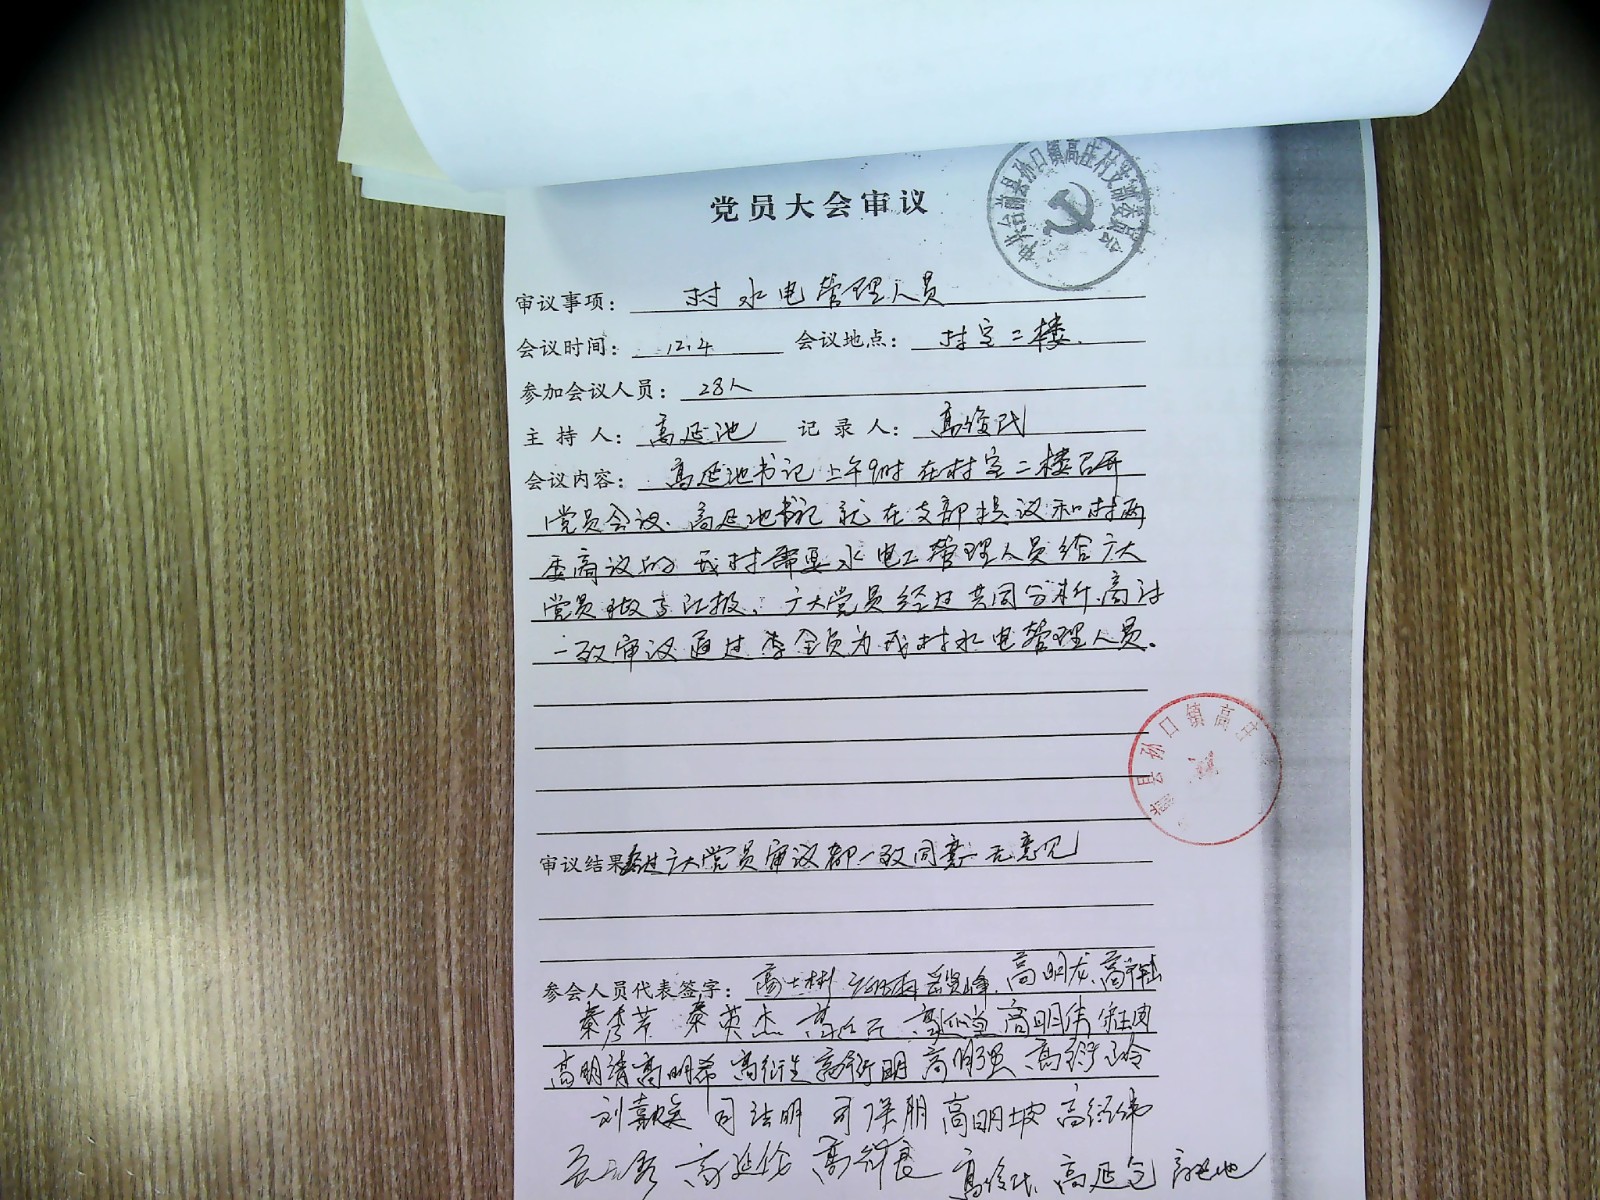 中共台前县孙口镇高庄村支部委员会
党员大会审议
审议事项： 村水电管理人员
会议时间： 12.4 会议地点： 村室二楼.
参加会议人员： 28人
主持人： 高延池 记录人： 高俊民
会议内容： 高延池书记上午9时在村室二楼召开
党员会议、高延池书记就在支部提议和村两
委商议的我村需要水电工管理人员给广大
党员做了汇报、广大党员经过共同分析、商讨
一致审议通过李全员为我村水电管理人员。
县孙口镇高庄
审议结果 经过广大党员审议都一致同意无意见
参会人员代表签字： 高士彬 高明龙、
秦秀芹 秦英杰 高明伟
高明清 高明希 高衍生 高衍明 高明强 高衍玲
刘嘉 司法明 司保朋 高明坡 高经纬
高延伦 高衍良 高俊民、高延 高延池